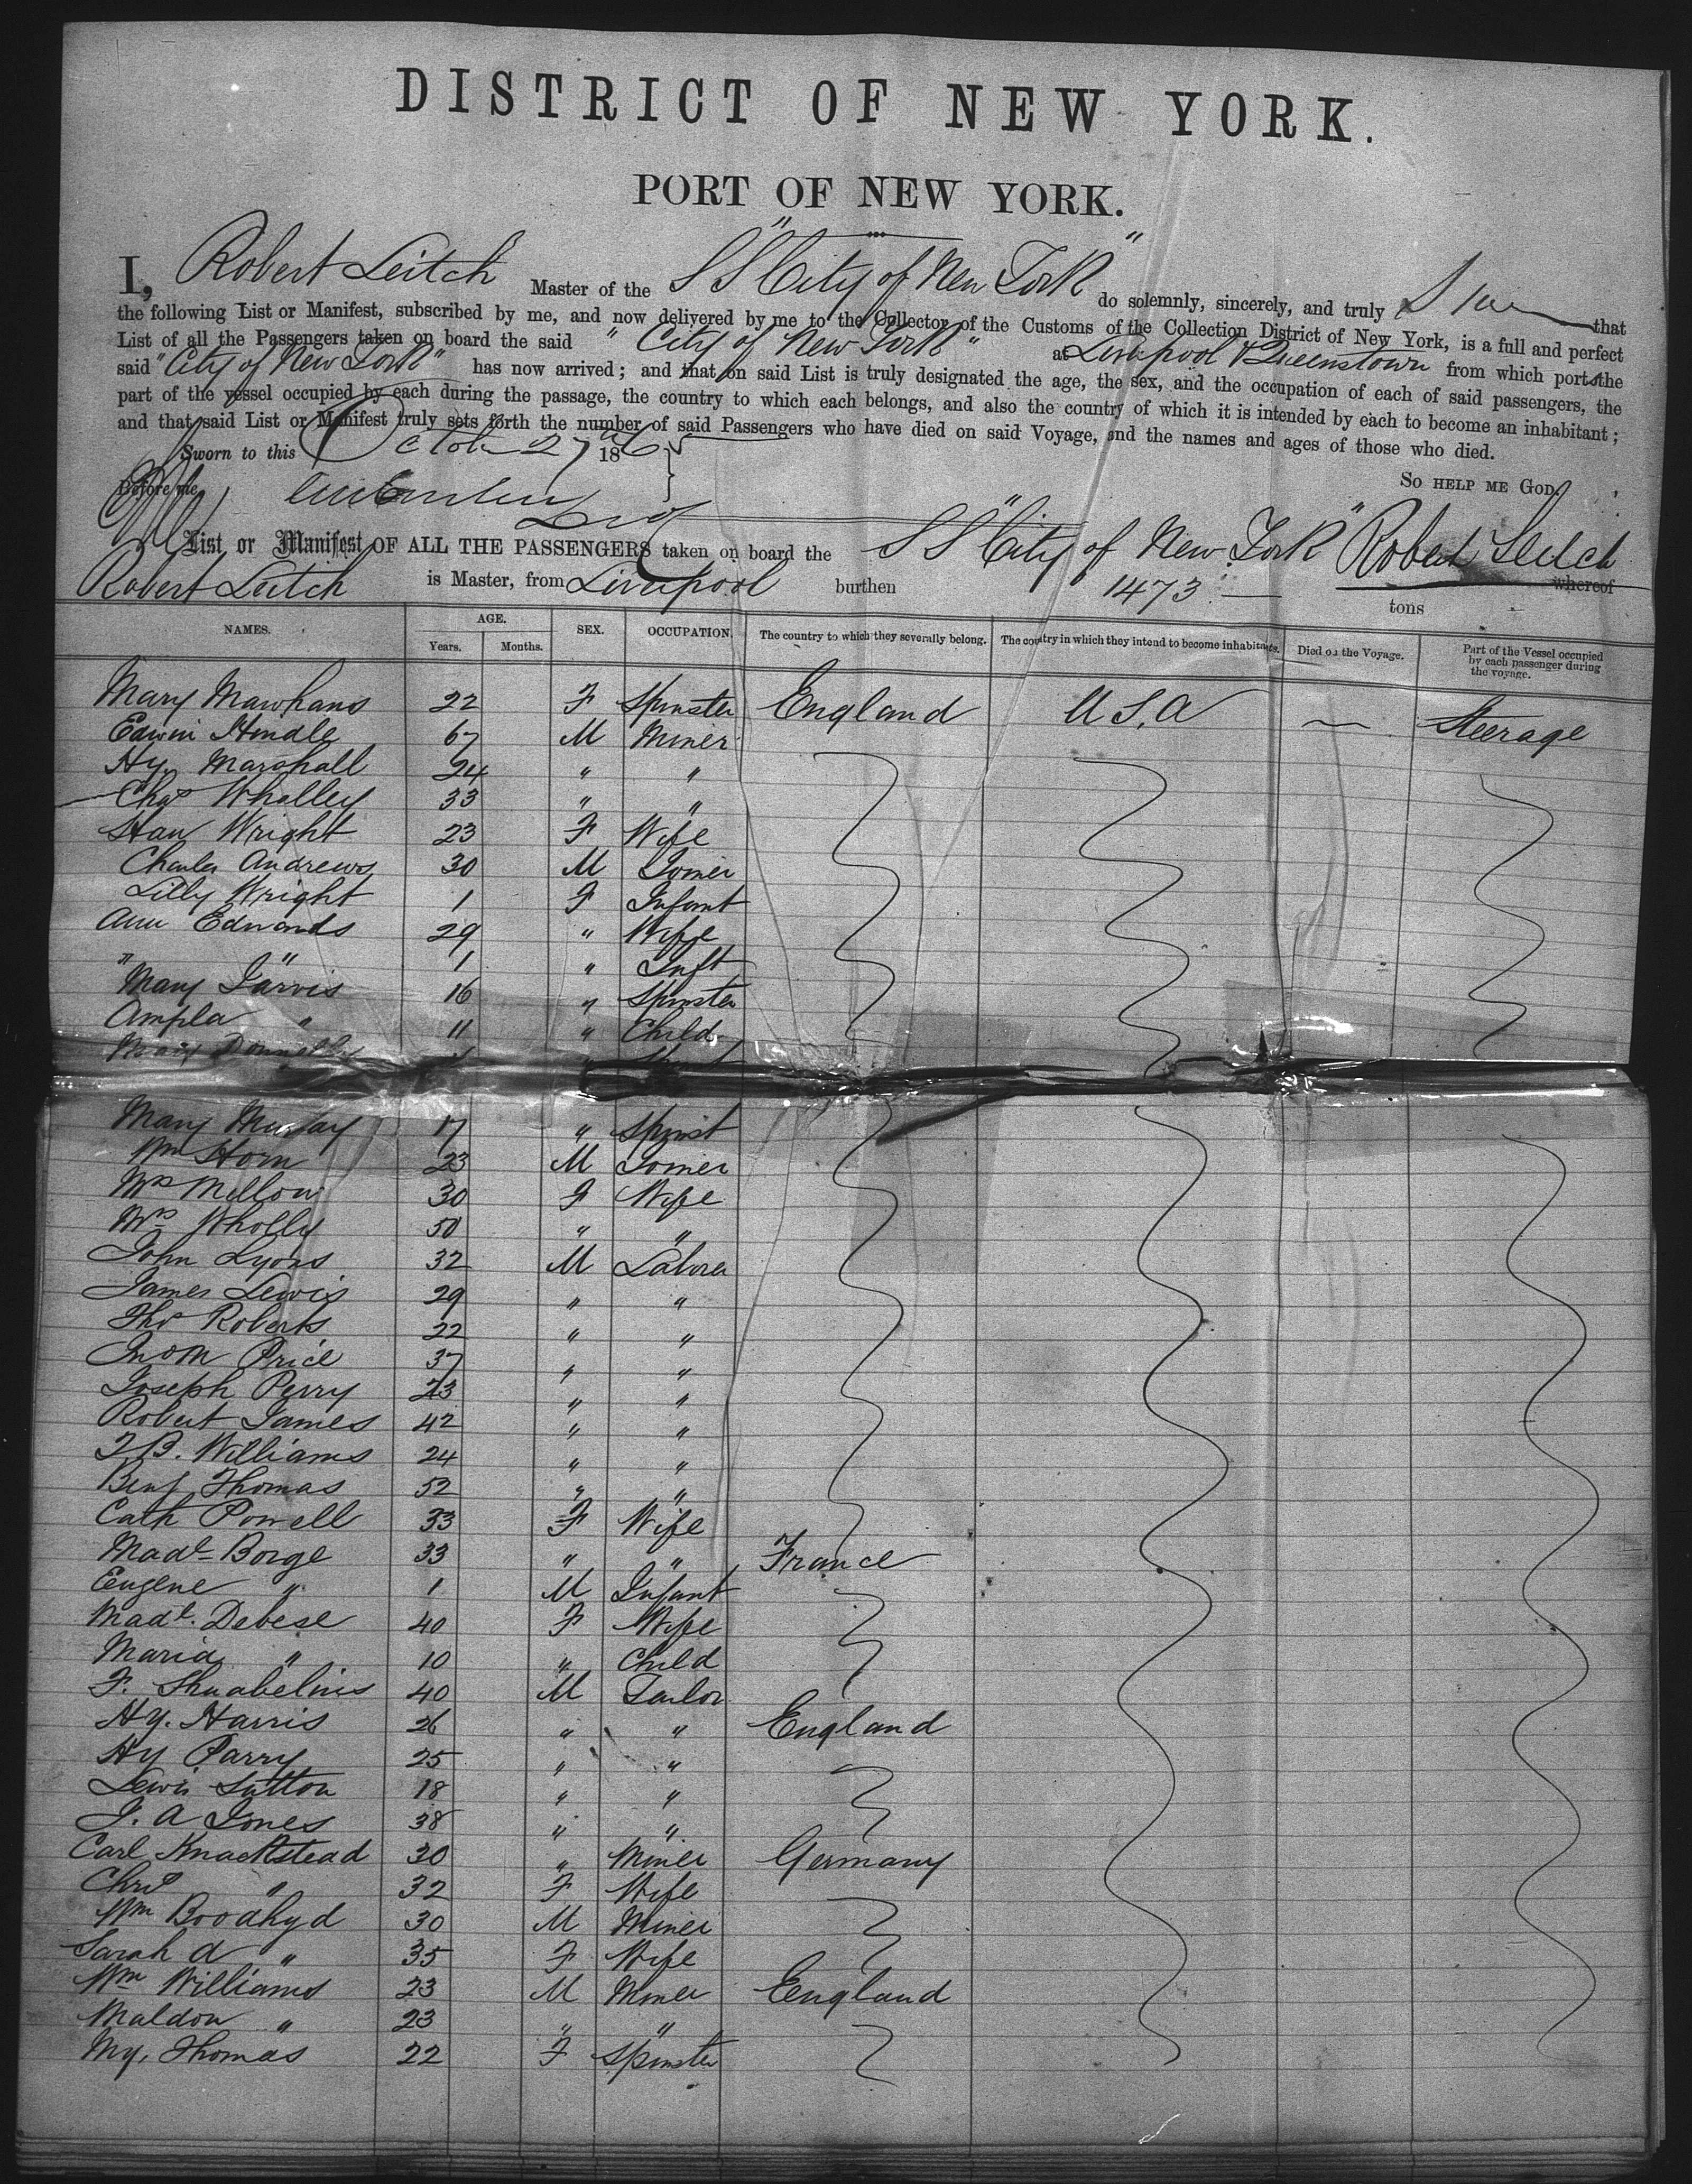 DISTRICT OF NEW YORK.
PORT OF NEW YORK.
I, Robert Leitch Master of the SS "City of New York" do solemnly, sincerely, and truly Swear that
the following List or Manifest, subscribed by me, and now delivered by me to the Collector of the Customs of the Collection District of New York, is a full and perfect
List of all the Passengers taken on board the said "City of New York" at Liverpool & Queenstown from which ports the
said "City of New York" has now arrived; and that on said List is truly designated the age, the sex, and the occupation of each of said passengers, the
part of the vessel occupied by each during the passage, the country to which each belongs, and also the country of which it is intended by each to become an inhabitant;
and that said List or Manifest truly sets forth the number of said Passengers who have died on said Voyage, and the names and ages of those who died.
Sworn to this October 27th 1865
So HELP ME GOD.
Before me,
Robert Leitch
List or Manifest OF ALL THE PASSENGERS taken on board the SS "City of New York" whereof
Robert Leitch is Master, from Liverpool burthen 1473 tons
NAMES. AGE. Years. Months. SEX. OCCUPATION. The country to which they severally belong. The country in which they intend to become inhabitants. Died on the Voyage. Part of the Vessel occupied by each passenger during the voyage.
Mary 22 F Spinster England U.S.A — Steerage
Edwin Hindle 67 M Miner
Hy. Marshall 24 " "
Chas Whalley 33 " "
Wright 23 F Wife
Charles Andrews 30 M Joiner
Lilly Wright 1 F Infant
Ann Edwards 29 " Wife
" " 1 " Inft
Mary Jarvis 16 " Spinster
Ampla " 11 " Child
Mary Donnelly
Mary Murray 17 " Spinst
Wm Horn 23 M Joiner
Mrs Mellow 30 F Wife
Mrs Wholly 50 " "
John Lyons 32 M Laborer
James Lewis 29 " "
Thos Roberts 22 " "
Price 37 " "
Joseph Perry 23 " "
Robert James 42 " "
T.B. Williams 24 " "
Benj Thomas 52 " "
Cath Powell 33 F Wife
Made Borge 33 " " France
Eugene " 1 M Infant
Made. Debese 40 F Wife
Maria " 10 " Child
F. 40 M Tailor
Hy. Harris 26 " " England
Hy Parry 25 " "
Lewis Sutton 18 " "
J. A Jones 38 " "
Carl Knackstead 30 " Miner Germany
Chrs " 32 F Wife
Wm Broadhyd 30 M Miner
Sarah A " 35 F Wife
Wm Williams 23 M Miner England
Maldon " 23 " "
My. Thomas 22 F Spinster